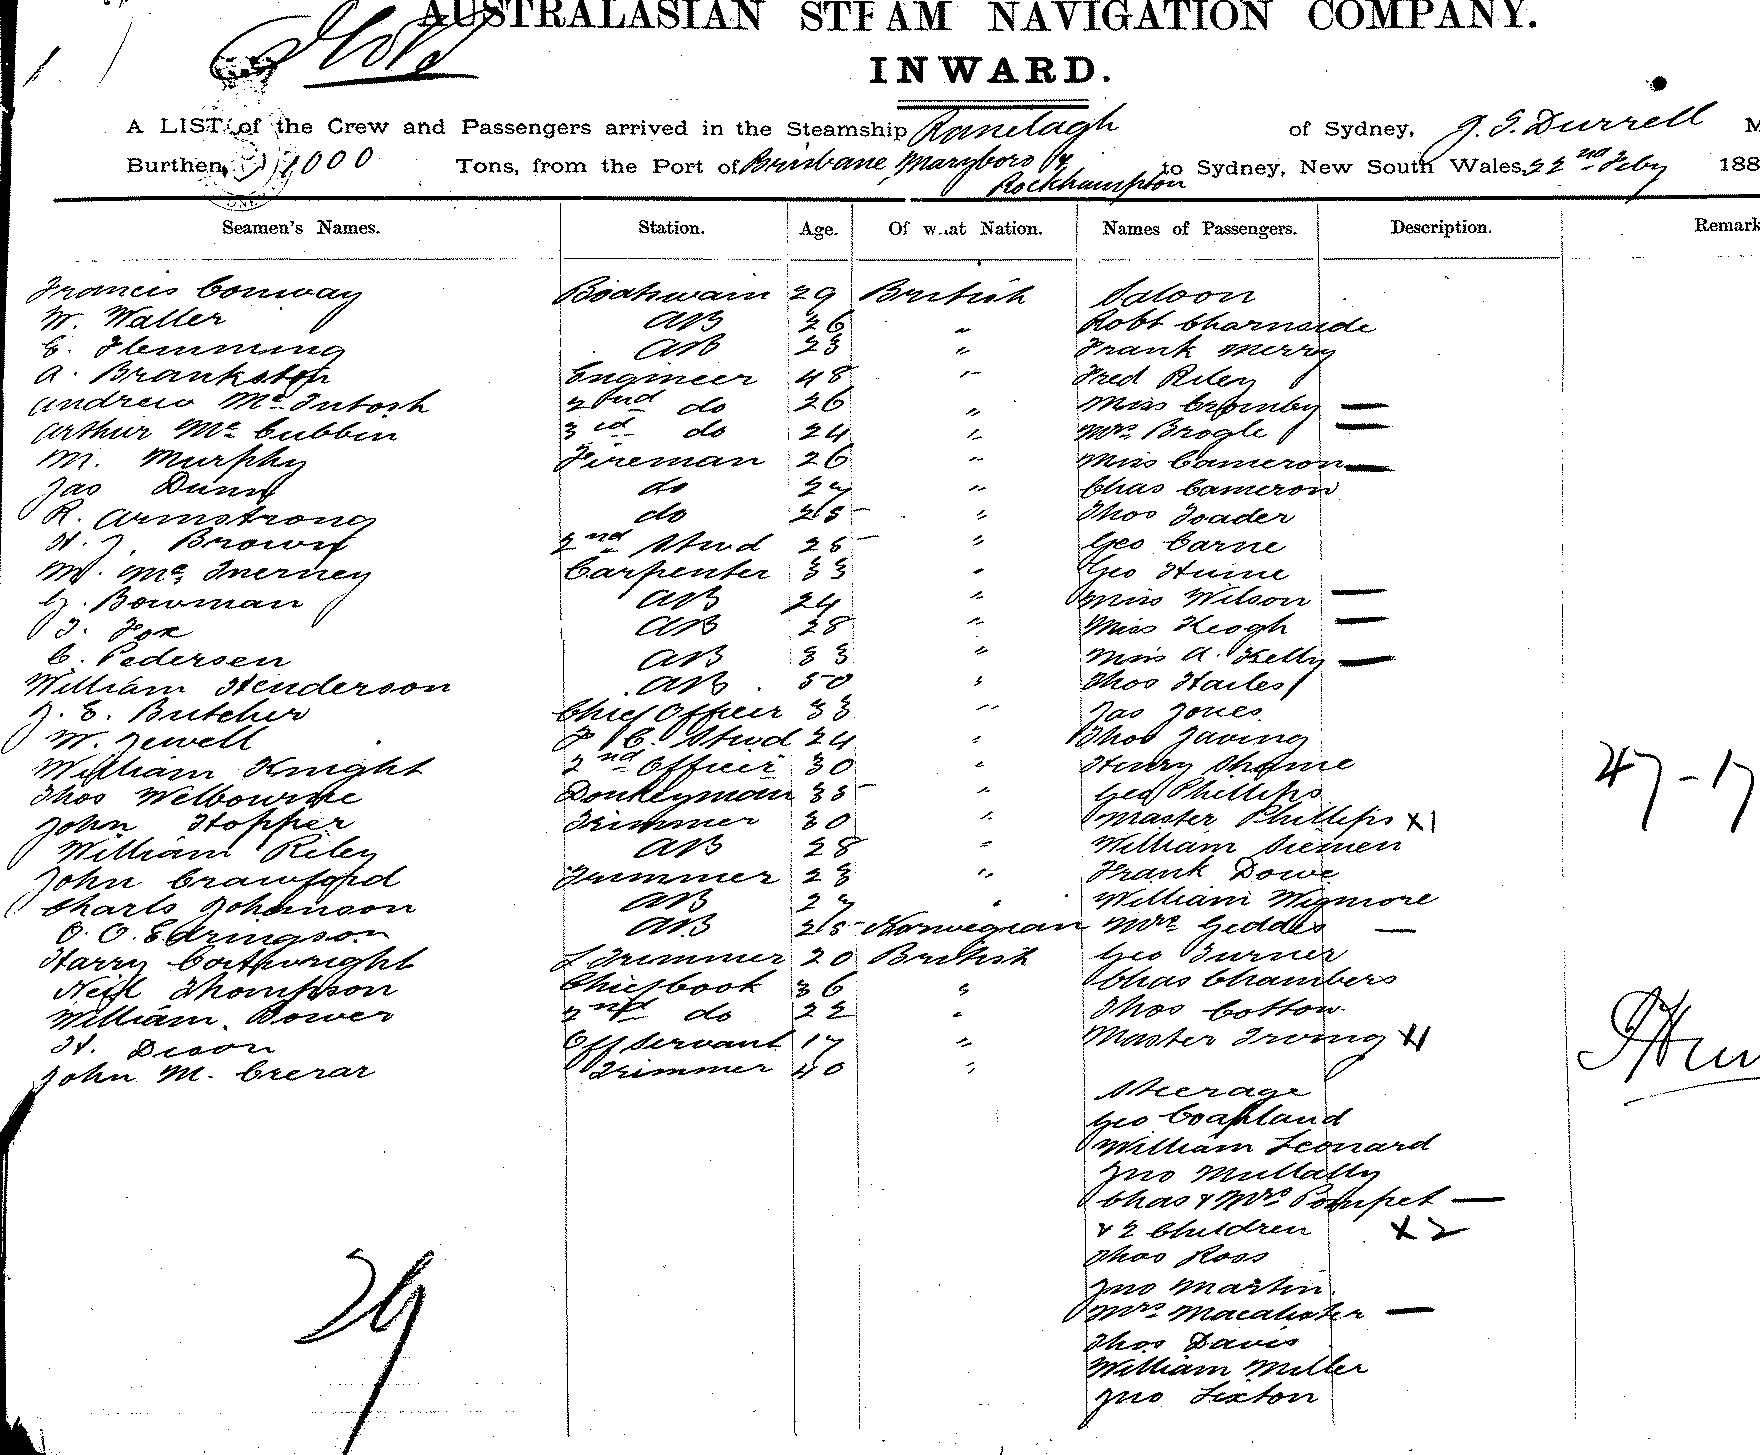 AUSTRALASIAN STEAM NAVIGATION COMPANY.
INWARD.
A LIST of the Crew and Passengers arrived in the Steamship Ranelagh of Sydney, J. S. Durrell M
Burthen, 1000 Tons, from the Port of Brisbane, Maryboro & Rockhampton to Sydney, New South Wales, 22nd Feby 188
Seamen's Names. Station. Age. Of what Nation. Names of Passengers. Description. Remark
Francis Conway Boatswain 29 British Saloon
W. Waller AB 26 " Robt Charnside
G. Flemming AB 23 " Frank Merry
A. Brankston Engineer 48 " Fred Riley
Andrew McIntosh 2nd do 26 " Miss Cromby —
Arthur McCubbin 3rd do 24 " Mrs Brogle —
M. Murphy Fireman 26 " Miss Cameron —
Jas Dunn do 27 " Chas Cameron
R. Armstrong do 25 " Thos Toader
H. J. Brown 2nd Stwd 25 " Geo Carne
M. McInerney Carpenter 33 " Geo Hume
G. Bowman AB 24 " Miss Wilson —
T. Fox AB 28 " Miss Keogh —
C. Pedersen AB 33 " Miss A. Kelly —
William Henderson AB 50 " Thos Hailes
J. E. Butcher Chief Officer 33 " Jas Jones
W. Jewell F. C. Stwd 24 " Thos Javing
William Knight 2nd Officer 30 " Henry Shome
Thos Welbourne Donkeyman 35 " Geo Phillips 47 - 17
John Hopper Trimmer 30 " Master Phillips X1
William Riley AB 28 " William Siemen
John Crawford Trimmer 23 " Frank Dowe
Charls Johanson AB 27 " William Wigmore
O. O. Edringson AB 25 Norwegian Mrs Geddes —
Harry Cartwright Trimmer 20 British Geo Turner
Neil Thompson Chief Cook 36 " Chas Chambers
William Bower 2nd do 22 " Thos Cotton
H. Dixon Off Servant 17 " Master Irving X1
John M. Crerar Trimmer 40 "
Steerage
Geo Coapland
William Leonard
Jno Mullally
Chas & Mrs Pompet —
& 2 Children X2
Thos Ross
Jno Martin
Mrs Macalister —
Thos Davis
William Miller
Jno Sexton
29